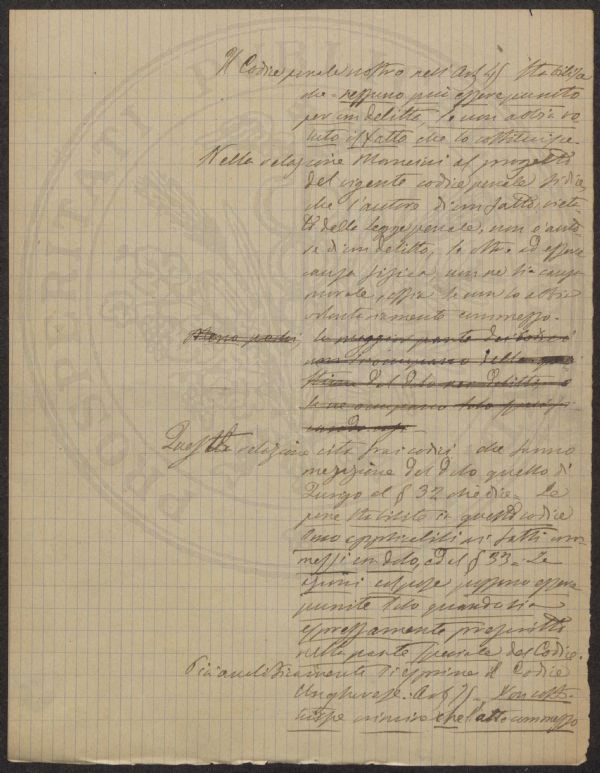 Il Codice penale nostro nell'Art 45 stabilisce
che - nessuno può essere punito
per un delitto, se non abbia vo
luto il fatto che lo costituisce.
Nella relazione Mancini al progetto
del vigente codice penale si dice,
che l'autore di un fatto vieta-
to dalla legge penale, non è auto-
re di un delitto, se oltre ad essere
causa fisica, non ne sia causa
morale, ossia se non lo abbia
volontariamente commesso.
la maggior parte dei Codici
non si occupano della
del dolo nei delitti, e
se ne occupano solo
Questa relazione cita fra i codici che fanno
menzione del dolo quello di
Zurigo al § 32 che dice - Le
pene stabilite in questo codice
sono applicabili ai fatti com-
messi con dolo, ed al § 33 - Le
azioni colpose possono essere
punite solo quando sia
espressamente prescritto
nella parte speciale del Codice.
Più analiticamente si esprime il Codice
Ungherese. Art 75 - Non costi-
tuisce crimine che l'atto commesso
PROSPERITATI PUBL